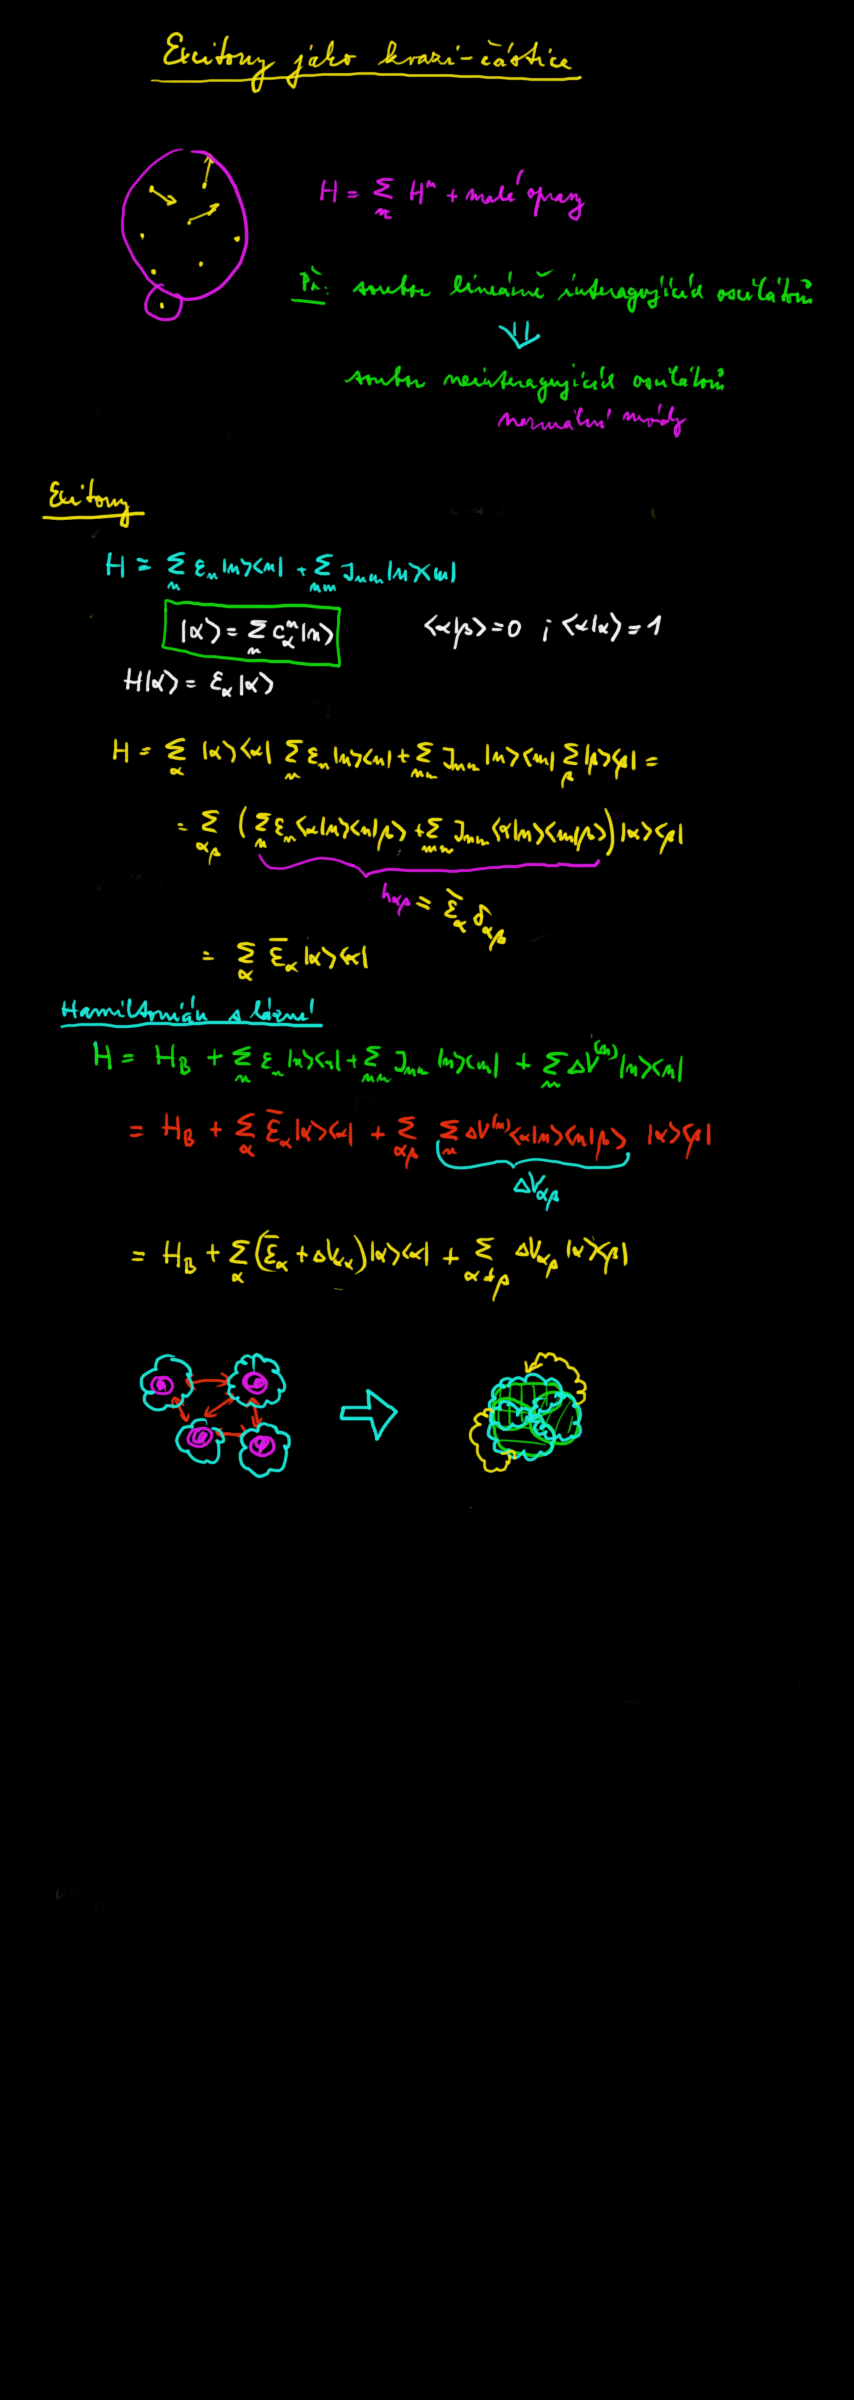 Excitony jako kvazi-částice
H = Σ_n H^n + malé opravy
Př: soubor lineárně interagujících oscilátorů
⇓
soubor neinteragujících oscilátorů
normální módy
Excitony
H = Σ_n ε_n |n><n| + Σ_nm J_nm |n><m|
|α> = Σ_n c_α^n |n>    <α|β> = 0 i <α|α> = 1
H|α> = ε_α |α>
H = Σ_α |α><α| Σ_n ε_n |n><n| + Σ_nm J_nm |n><m| Σ_β |β><β| =
= Σ_αβ ( Σ_n ε_n <α|n><n|β> + Σ_nm J_nm <α|n><m|β> ) |α><β|
h_αβ = ε̄_α δ_αβ
= Σ_α ε̄_α |α><α|
Hamiltonián s lázní
H = H_B + Σ_n ε_n |n><n| + Σ_nm J_nm |n><m| + Σ_n ΔV^(n) |n><n|
= H_B + Σ_α ε̄_α |α><α| + Σ_αβ Σ_n ΔV^(n) <α|n><n|β> |α><β|
ΔV_αβ
= H_B + Σ_α (ε̄_α + ΔV_αα) |α><α| + Σ_α≠β ΔV_αβ |α><β|